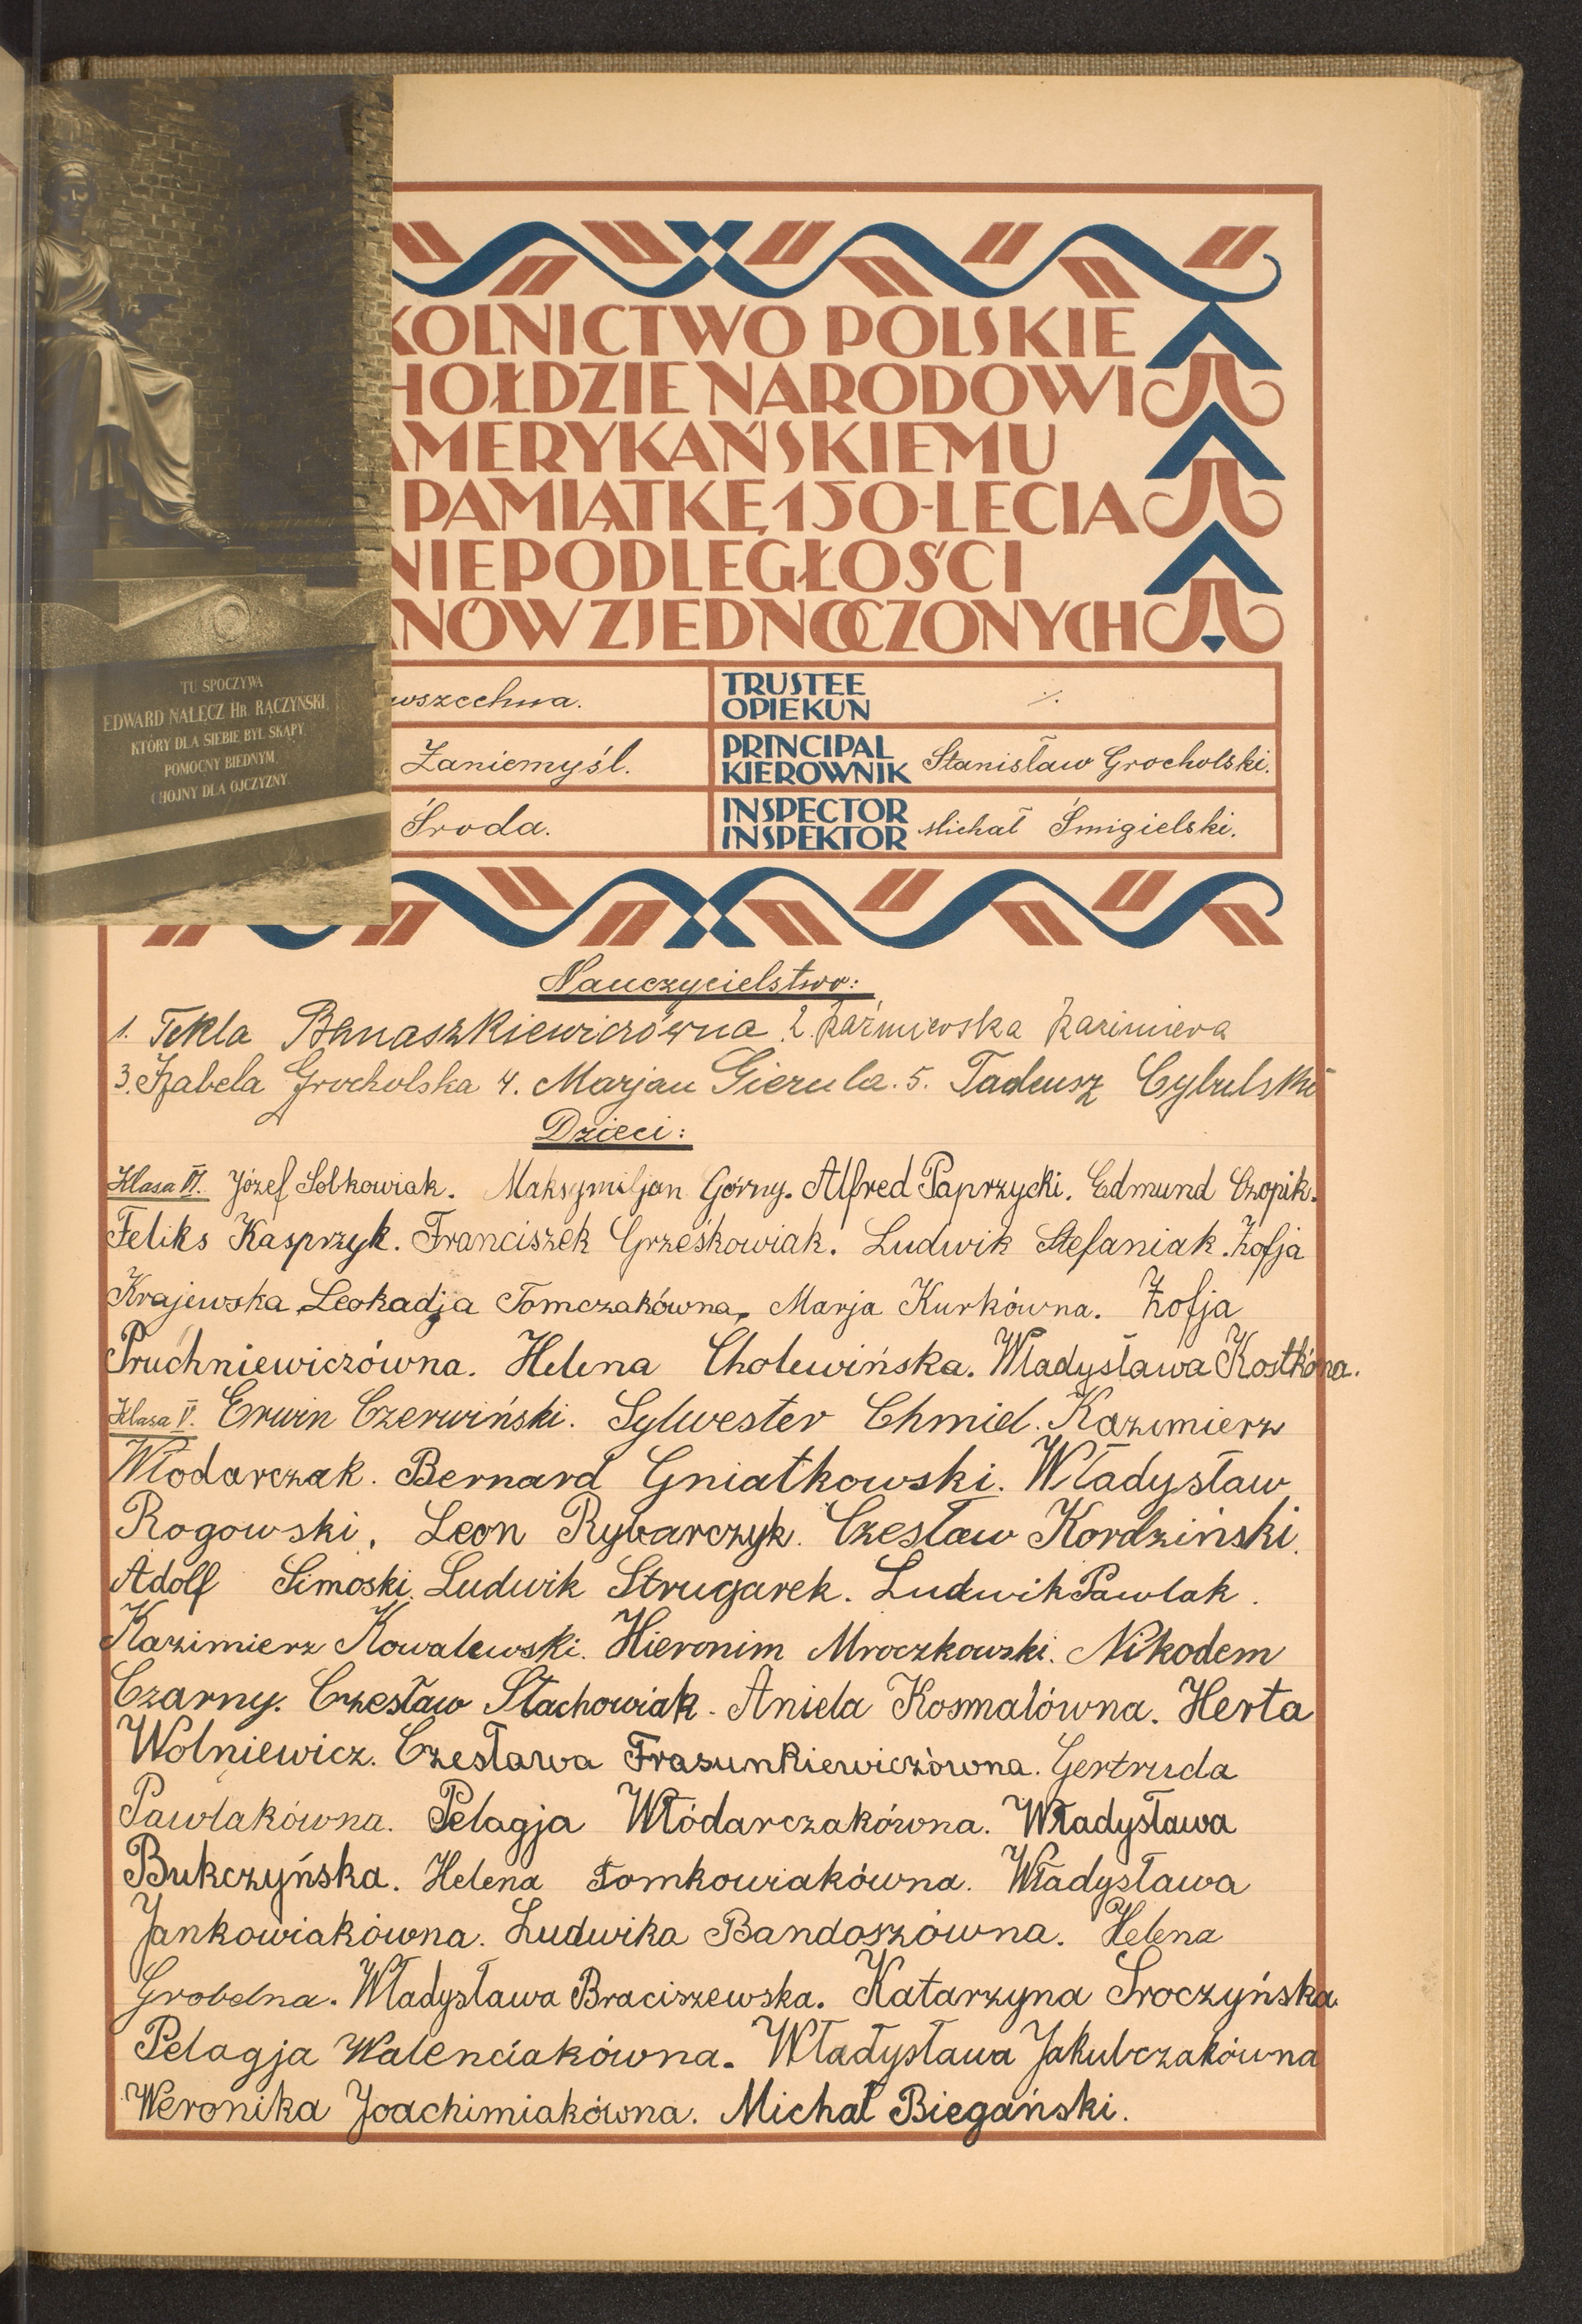 TU SPOCZYWA
EDWARD NAŁĘCZ HR. RACZYŃSKI,
KTÓRY DLA SIEBIE BYŁ SKĄPY,
POMOCNY BIEDNYM,
HOJNY DLA OJCZYZNY
KOLNICTWO POLSKIE
HOŁDZIE NARODOWI
AMERYKAŃSKIEMU
PAMIĄTKĘ 150-LECIA
NIEPODLEGŁOŚCI
NÓW ZJEDNOCZONYCH
wszechna.
TRUSTEE
OPIEKUN
·/.
Zaniemyśl.
PRINCIPAL
KIEROWNIK
Stanisław Grocholski.
Środa.
INSPECTOR
INSPEKTOR
Michał Śmigielski.
Nauczycielstwo:
1. Tekla Banaszkiewiczówna 2. Kaźmierska Kazimiera
3. Izabela Grocholska 4. Marjan Gierula. 5. Tadeusz Cybulski
Dzieci:
Klasa VI. Józef Sobkowiak. Maksymiljan Górny. Alfred Paprzycki. Edmund Czopik.
Feliks Kasprzyk. Franciszek Grześkowiak. Ludwik Stefaniak. Zofja
Krajewska, Leokadja Tomczakówna, Marja Kurkówna. Zofja
Pruchniewiczówna. Helena Cholewińska. Władysława Kostkóna.
Klasa V. Erwin Czerwiński. Sylwester Chmiel. Kazimierz
Włodarczak. Bernard Gniatkowski. Władysław
Rogowski, Leon Rybarczyk. Czesław Kordziński.
Adolf Simoski. Ludwik Strugarek. Ludwik Pawlak.
Kazimierz Kowalewski. Hieronim Mroczkowski. Nikodem
Czarny. Czesław Stachowiak. Aniela Kosmalówna. Herta
Wolniewicz. Czesława Frasunkiewiczówna. Gertruda
Pawlakówna. Pelagja Włódarczakówna. Władysława
Bukczyńska. Helena Tomkowiakówna. Władysława
Jankowiakówna. Ludwika Bandoszówna. Helena
Grobelna. Władysława Braciszewska. Katarzyna Sroczyńska.
Pelagja Walenciakówna. Władysława Jakubczakówna
Weronika Joachimiakówna. Michał Biegański.